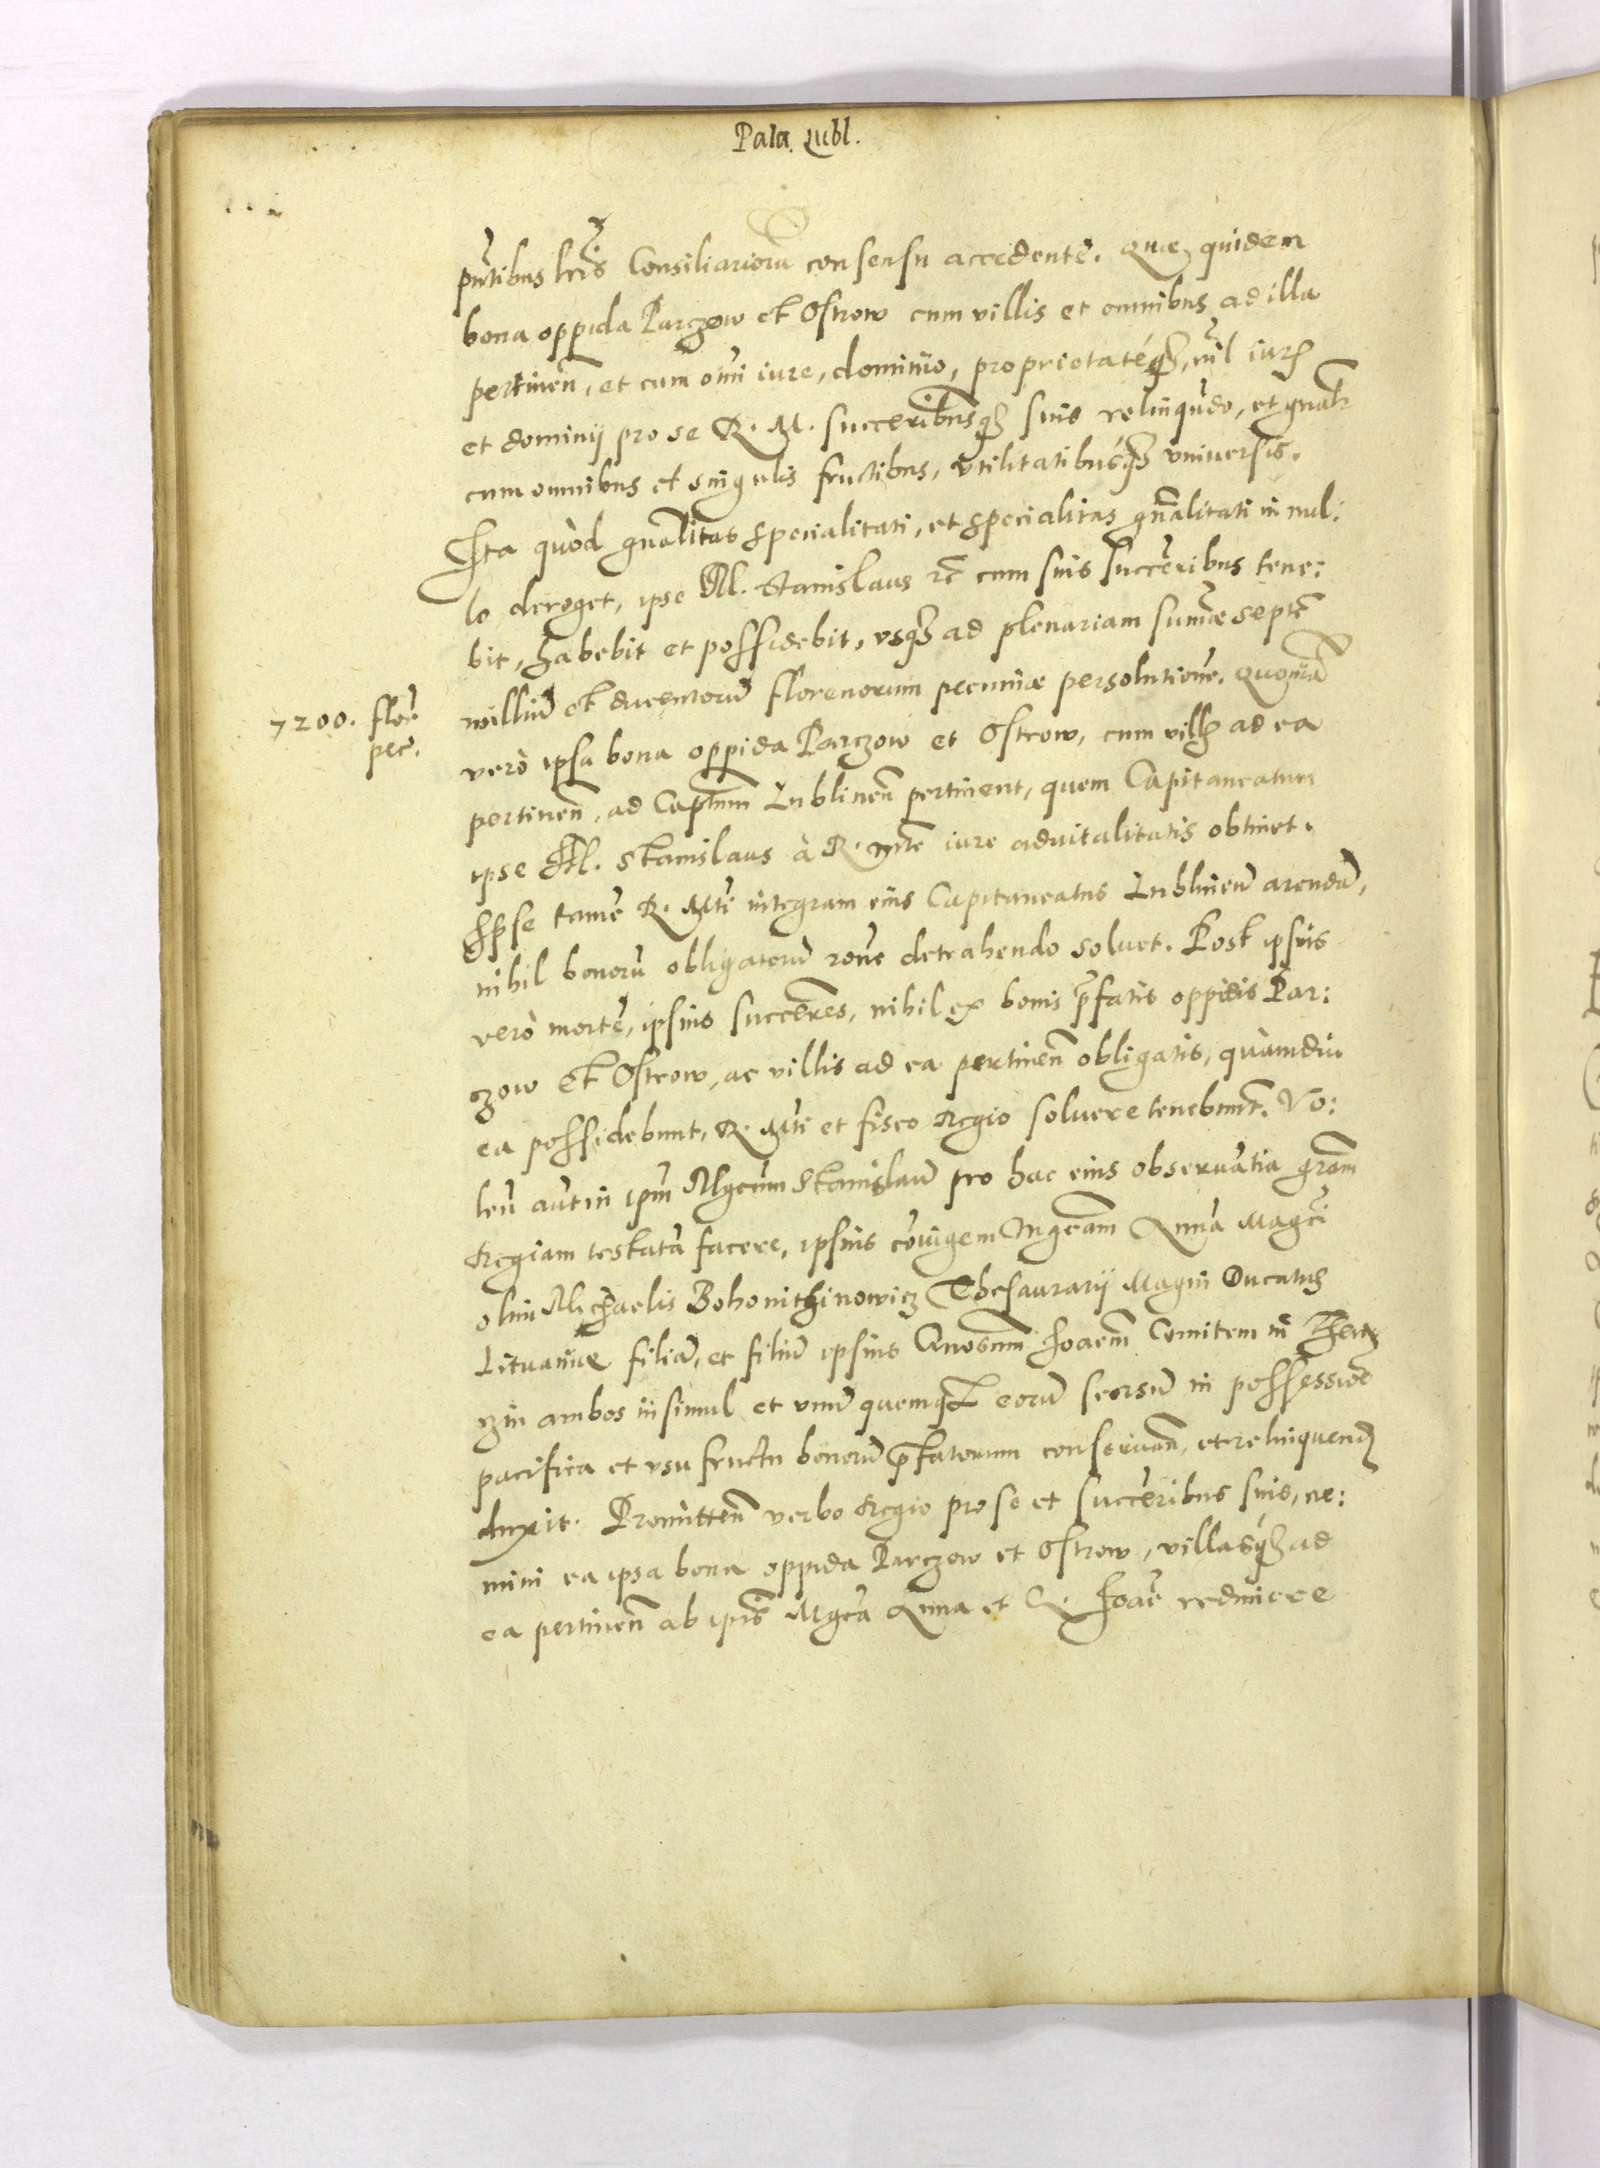 Pala. Lubl.
pñtibus lrīs Consiliariorũ consensu accedente. Quæ quidem
bona oppida Parczow et Ostrow cum villis et omnibus ad illa
pertineñ, et cum oĩ iure, dominio, proprietateq3, nĩl iuris
et dominij pro se R. M. succeribusq3 suis relinquẽdo, et gñalr
cum omnibus et singulis fructibus, vtilitatibusq3 vniuersis.
Ita quòd gñalitas specialitati, et specialitas gñalitati in nul:
lo deroget, ipse M. Stanislaus etc cum suis succeribus tene:
bit, habebit et possidebit, vsq3 ad plenariam sum̃æ septẽ
7200. flor̃
pec.
milliũ et ducentorũ florenorum pecuniæ persolutionẽ. Quoniã
verò ipsa bona oppida Parczow et Ostrow, cum villis ad ea
pertineñ, ad Captum Lublineñ pertinent, quem Capitaneatum
ipse M. Stanislaus à R. Mte iure aduitalitatis obtinet.
Ipse tamẽ R. Mti integram eius Capitaneatus Lublineñ arendã,
nihil bonorũ obligatorũ rõne detrahendo soluet. Post ipsius
verò mortẽ, ipsius succeres, nihil ex bonis p̃fatis oppidis Par:
czow et Ostrow, ac villis ad ea pertineñ obligatis, quàmdiu
ea possidebunt, R. Mti et fisco Regio soluere tenebunt. Vo:
leñ aũt in ipm̃ Mgcum Stanislaũ pro hac eius obseruãtia gr̃am
Regiam testatã facere, ipsius cõiugem Mgcam Annã Magci
olim Michaelis Bohonithinowicz Thesaurarij Magni Ducatus
Lituaniæ filiã, et filiũ ipsius Gnosum Ioañem Comitem in
zin ambos insimul et vnũ quemq3 eorũ seorsũ in possessiõe
pacifica et vsu fructu bonorũ p̃fatorum conseruañ, et relinquend
duxit. Promitteñ verbo Regio pro se et succeribus suis, ne:
mini ea ipsa bona oppida Parczow et Ostrow, villasq3 ad
ea pertineñ ab ipsis Mgca Anna et G. Ioañe redimere